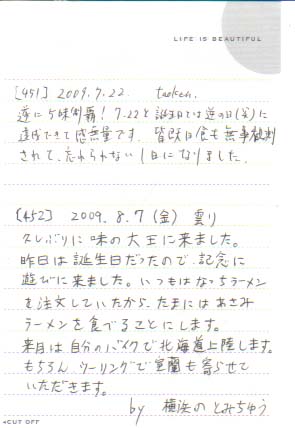 LIFE IS BEAUTIFUL
[451] 2009.7.22.
逆に5味制覇! 7.22と誕生日とは逆の日(笑)に
達成できて感無量です。皆既日食も無事観測
されて、忘れられない1日になりました。
[452] 2009.8.7(金) 曇り
久しぶりに味の大王に来ました。
昨日は誕生日だったので、記念に
遊びに来ました。いつもはなっちラーメン
を注文していたから、たまにはあさみ
ラーメンを食べることにします。
来月は自分のバイクで北海道上陸します。
もちろん、ツーリングで室蘭も寄らせて
いただきます。
by 横浜のとみちゅう
◂CUT OFF